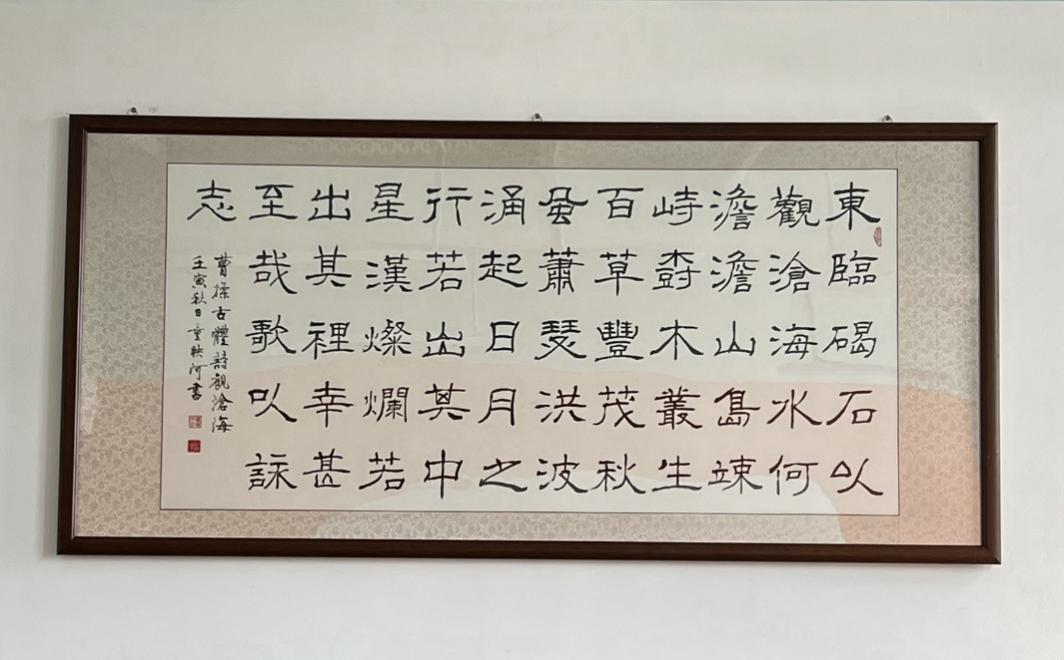 東臨碣石以
觀滄海水何
澹澹山島竦
峙樹木叢生
百草豐茂秋
風蕭瑟洪波
涌起日月之
行若出其中
星漢燦爛若
出其裡幸甚
至哉歌以詠
志
曹操古體詩觀滄海
壬寅秋日童河書